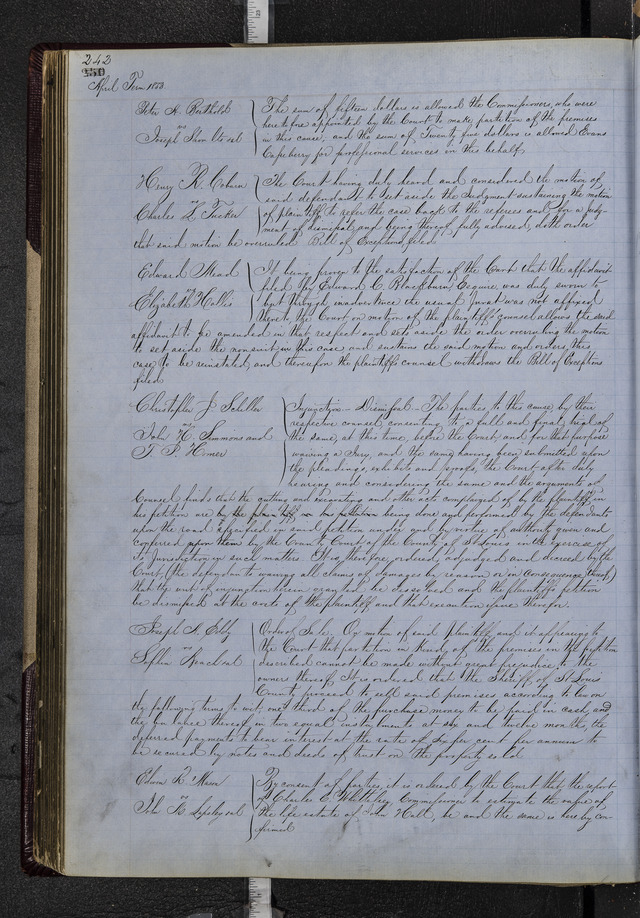 242
250
April Term 1853.
Peter A. Berthold
vs
Joseph et al
The sum of fifteen dollars is allowed the Commissioners, who were
heretofore appointed by the Court to make partition of the premises
in this cause, and the sum of Twenty five dollars is allowed Evans
Casebeny for professional services in this behalf.
Henry R. Coburn
vs
Charles L. Tucker
The Court having duly heard and considered the motion of
said defendant to set aside the Judgment sustaining the motion
of plaintiff to refer the case back to the referees and for a judg-
ment of dismissal, and being thereof fully advised, doth order
that said motion be overruled. Bill of Exceptions filed.
Edward Mead
vs
Elizabeth Hollis
It being proven to the satisfaction of the Court that the affidavit
filed by Edward C. Blackburn, Esquire, was duly sworn to
but through inadvertence the usual Jurat was not affixed
thereto, the Court on motion of the plaintiff's counsel allows the said
affidavit to be amended in that respect and set aside the order overruling the motion
to set aside the nonsuit in this case and sustains the said motion and orders this
case to be reinstated, and thereupon the plaintiff's counsel withdraws the Bill of Exceptions
filed.
Christopher J. Schiller
vs
John H. Simmons and
T. F. Homer
Injunction - Dismissal - The parties to this cause by their
respective counsel, consenting to a full and final trial of
the same, at this time, before the Court, and for that purpose
waiving a Jury, and the same having been submitted upon
the pleadings, exhibits and proofs, the Court, after duly
hearing and considering the same and the arguments of
Counsel finds that the cutting and excavating and other acts complained of by the plaintiff, in
his petition are by the plaintiff in his petition being done and performed by the defendants
upon the road described in said petition under and by virtue of authority given and
conferred upon them by the County Court of the County of St Louis in the exercise of
its Jurisdiction in such matters. It is therefore ordered, adjudged and decreed by the
Court, (the defendants waiving all claims of damages by reason or in consequence thereof)
that the writ of injunction herein granted be dissolved and the plaintiff's petition
be dismissed at the costs of the plaintiff and that execution issue therefor.
Joseph A. Eddy
vs
Sophia et al
Order of Sale. On motion of said plaintiff and it appearing to
the Court that partition in Kind, of the premises in the petition
described cannot be made without great prejudice to the
owners thereof, It is ordered that the Sheriff of St Louis
County proceed to sell said premises according to law on
the following terms to wit, one third of the purchase money to be paid in cash, and
the balance thereof in two equal instalments at six and twelve months, the
deferred payments to bear interest at the rate of six per cent per annum to
be secured by notes and deeds of trust on the property sold.
Edwin R. Mason
vs
John H. Lapsley et al
By consent of parties, it is ordered by the Court that the report
of Charles C. Whittelsey Commissioner to estimate the value of
the life estate of John Hall, be and the same is hereby con-
firmed.